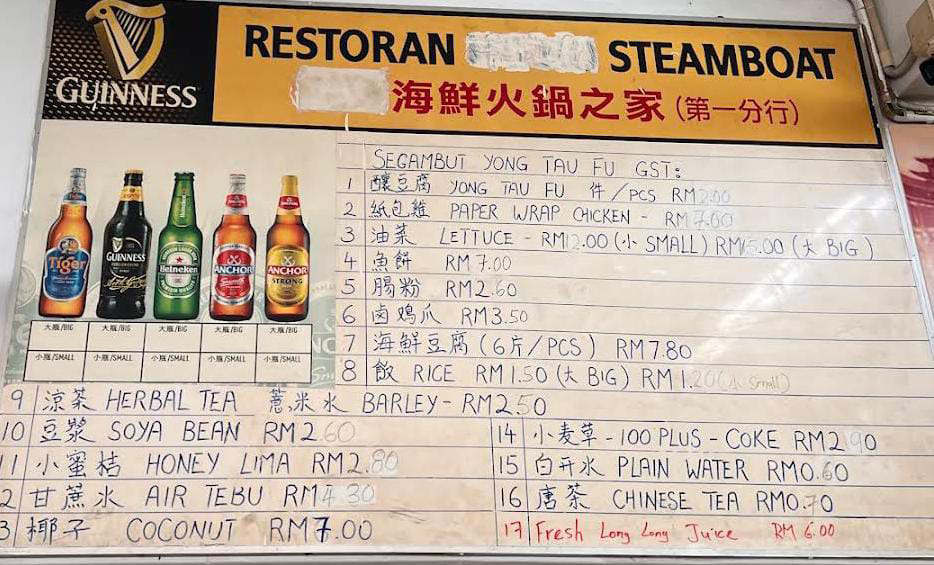 GUINNESS
RESTORAN STEAMBOAT
海鮮火鍋之家 (第一分行)
SEGAMBUT YONG TAU FU GST:
1 釀豆腐 YONG TAU FU 件/PCS RM2.00
2 紙包雞 PAPER WRAP CHICKEN - RM7.00
3 油菜 LETTUCE - RM12.00 (小 SMALL) RM15.00 (大 BIG)
4 魚餅 RM7.00
5 腸粉 RM2.60
6 鹵鳮爪 RM3.50
7 海鮮豆腐 (6片/PCS) RM7.80
8 飯 RICE RM1.50 (大 BIG) RM1.20 (小 Small)
Tiger
GUINNESS
Heineken
ANCHOR Smooth
ANCHOR STRONG
大瓶/BIG 大瓶/BIG 大瓶/BIG 大瓶/BIG 大瓶/BIG
小瓶/SMALL 小瓶/SMALL 小瓶/SMALL 小瓶/SMALL 小瓶/SMALL
9 涼茶 HERBAL TEA 薏米水 BARLEY - RM2.50
10 豆漿 SOYA BEAN RM2.60
11 小蜜桔 HONEY LIMA RM2.80
2 甘蔗水 AIR TEBU RM4.30
3 椰子 COCONUT RM7.00
14 小麦草 - 100 PLUS - COKE RM2.90
15 白开水 PLAIN WATER RM0.60
16 唐茶 CHINESE TEA RM0.70
17 Fresh Long Long Juice RM 6.00